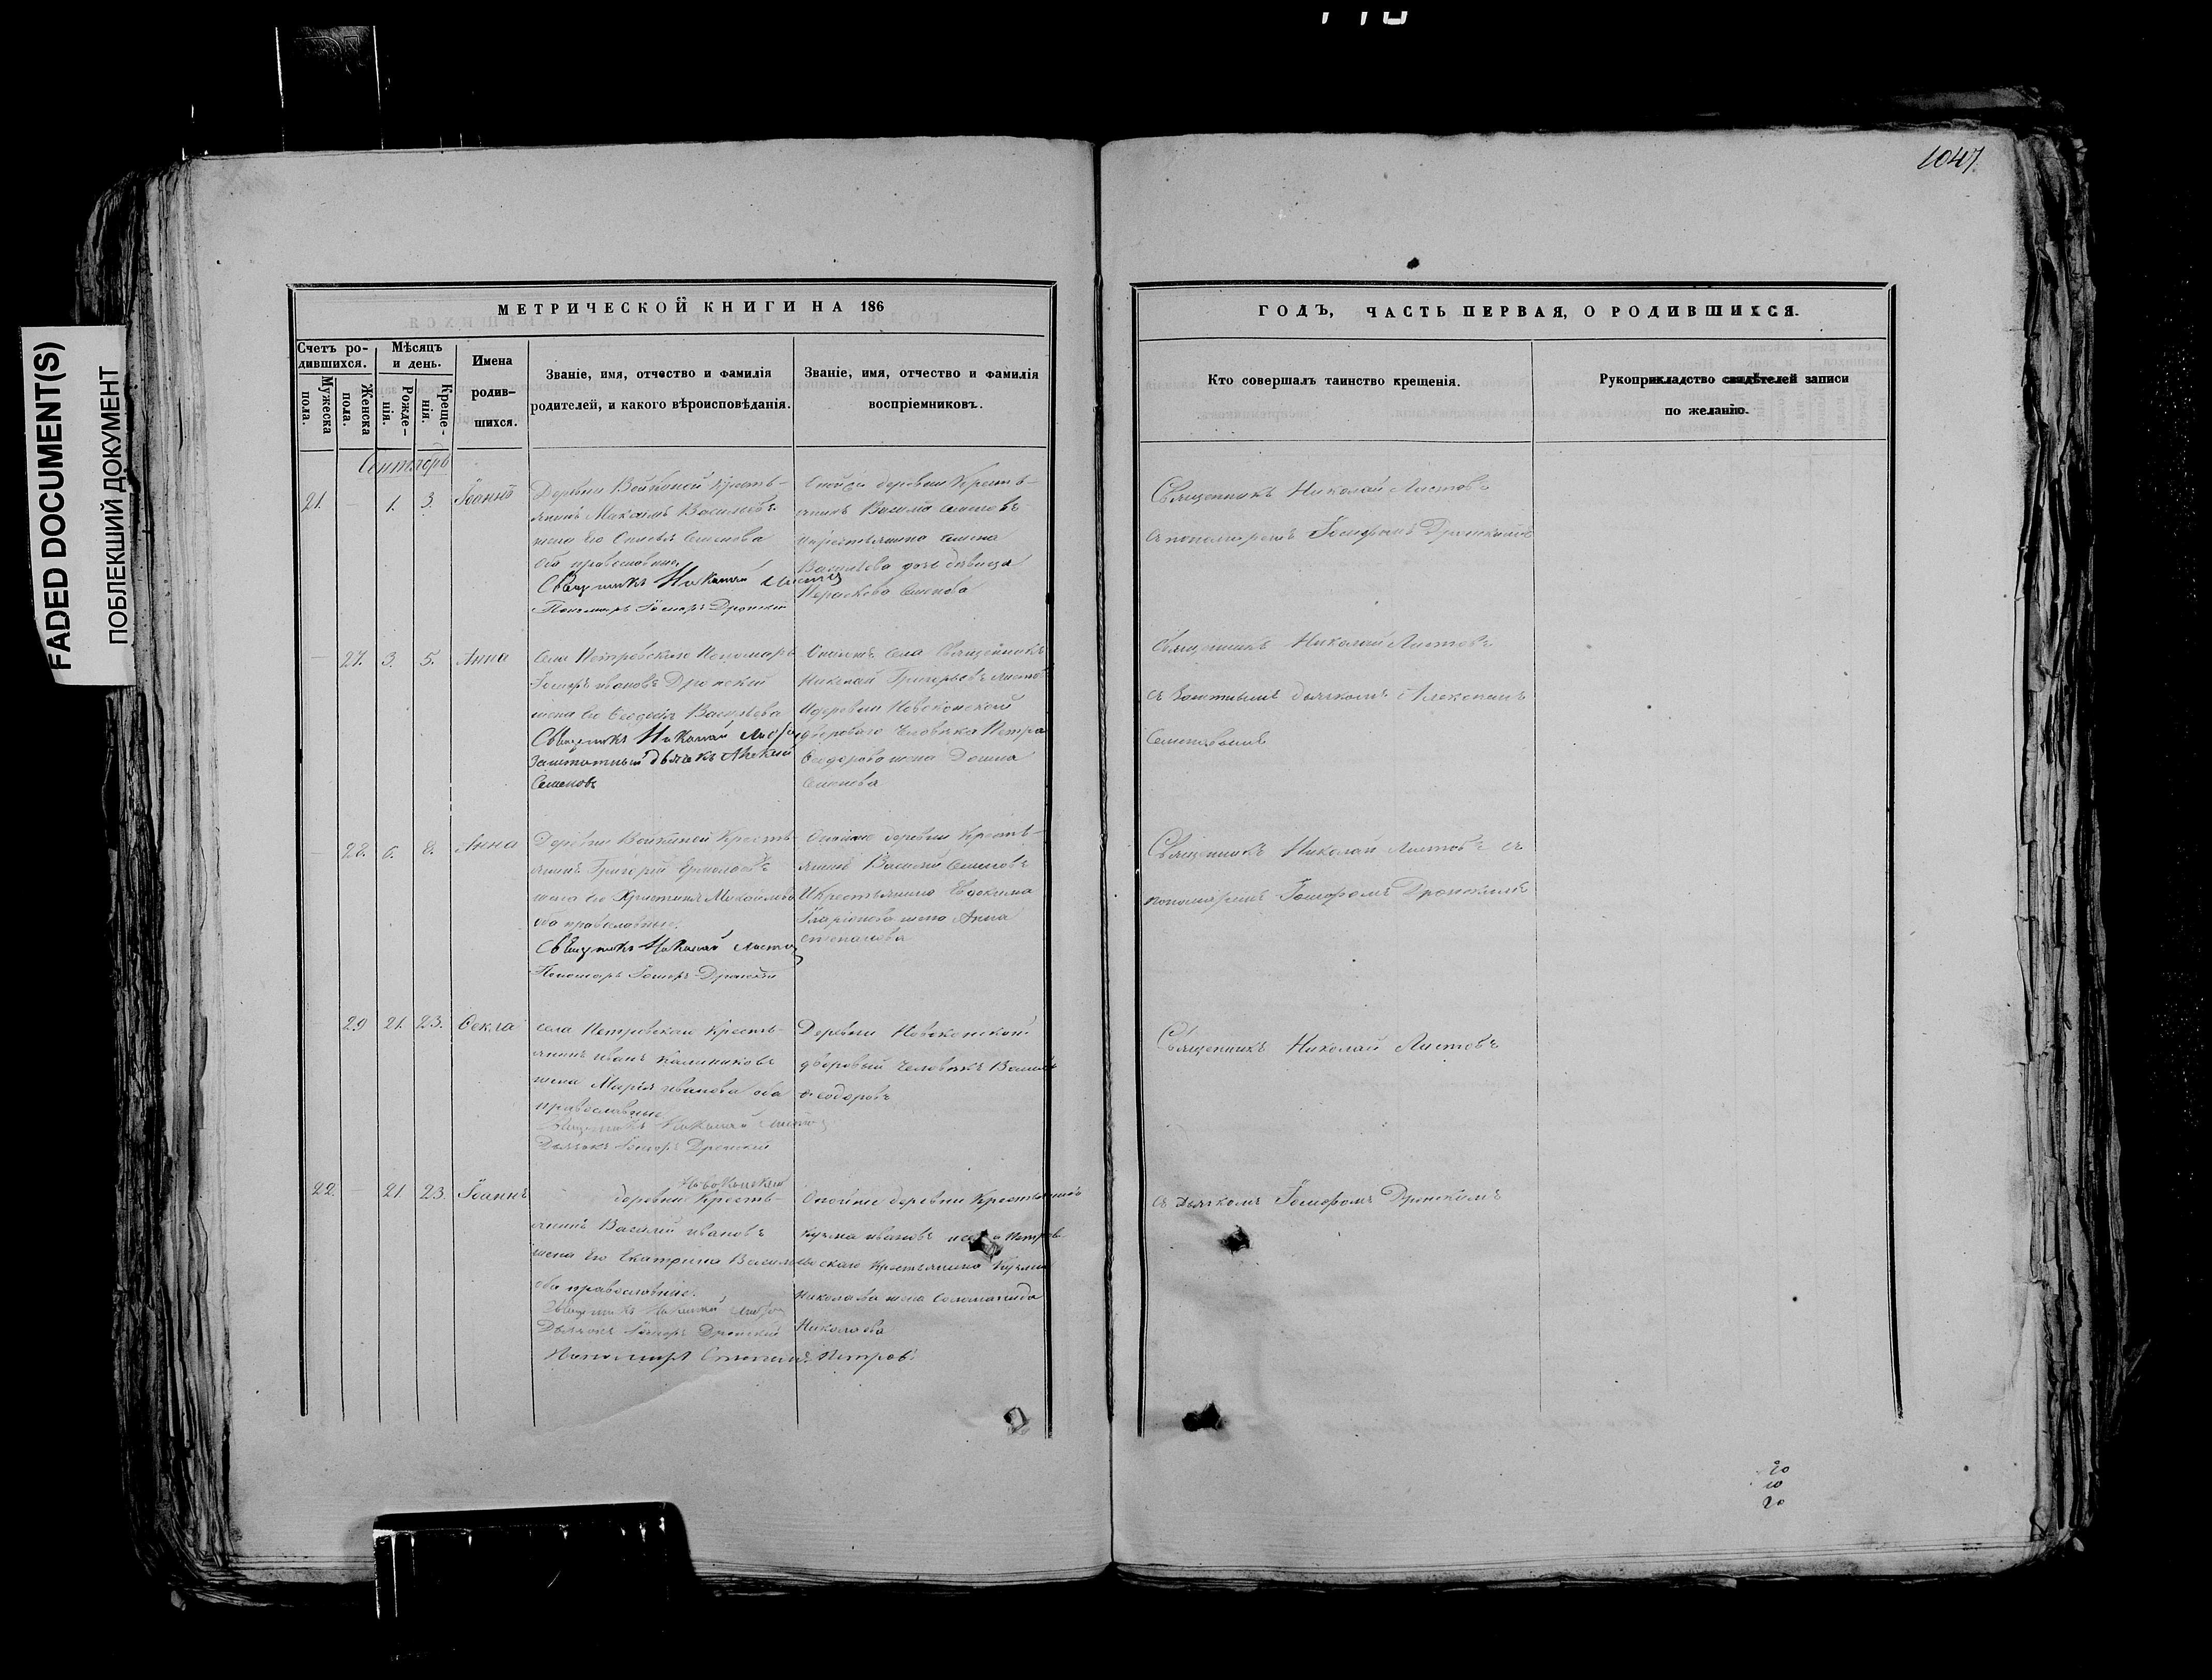 FADED DOCUMENT(S)
ПОБЛЕКШИЙ ДОКУМЕНТ
1047
МЕТРИЧЕСКОЙ КНИГИ НА 186
Счетъ ро-
дившихся.
Мужеска
пола.
Женска
пола.
Мѣсяцъ
и день.
Рожде-
нія.
Креще-
нія.
Имена
родив-
шихся.
Званіе, имя, отчество и фамилія
родителей, и какого вѣроисповѣданія.
Званіе, имя, отчество и фамилія
воспріемниковъ.
Сентябрь
21. 1. 3. Іоаннъ
Деревни Кресть-
янинъ Максимъ Васильевъ
жена его Семенова
оба православные
Священникъ Николай Листовъ
Пономарь Дронскій
деревни Кресть-
янинъ Семеновъ
и крестьянина Семена
Васильева дочь девица
Параскева Семенова
27. 3. 5. Анна
Села Петровскаго Пономарь
Ивановъ Дронскій
жена его Ѳеодосія Васильева
Священникъ Николай Листовъ
Заштатный дьячекъ Алексей
Семеновъ
села Священникъ
Николай Григорьевъ Листовъ
и деревни
двороваго человека Петра
Ѳеодорова жена Домна
Семенова
28. 6. 8. Анна
Деревни Кресть-
янинъ Григорій
жена его Христина Михайлова
оба православные.
Священникъ Николай Листовъ
Пономарь Дронскій
деревни Кресть-
янинъ Василій Семеновъ
и крестьянина Евдокима
Иларіонова жена Анна
Степанова
29 21. 23. Ѳекла
села Петровскаго Кресть-
янинъ Иванъ Калиниковъ
жена Марія Иванова оба
православные
Священникъ Николай Листовъ
Дьячокъ Дронскій
Деревни
дворовый человекъ
Ѳеодоровъ
22. 21. 23. Іоаннъ
деревни Кресть-
янинъ Василій Ивановъ
жена его Екатерина
оба православные.
Священникъ Николай Листовъ
Дьячокъ Дронскій
Пономарь Степанъ Петровъ
деревни Крестьянинъ
Кузма Ивановъ и
Крестьянина Кузмы
Николаева жена Соломанида
Николаева
ГОДЪ, ЧАСТЬ ПЕРВАЯ, О РОДИВШИХСЯ.
Кто совершалъ таинство крещенія.
Рукоприкладство свидѣтелей записи
по желанію.
Священникъ Николай Листовъ
съ пономаремъ Дронскимъ
Священникъ Николай Листовъ
съ заштатнымъ дьячкомъ Алексеемъ
Семеновымъ
Священникъ Николай Листовъ съ
пономаремъ Дронскимъ
Священникъ Николай Листовъ
съ дьячкомъ Дронскимъ
20
10
20